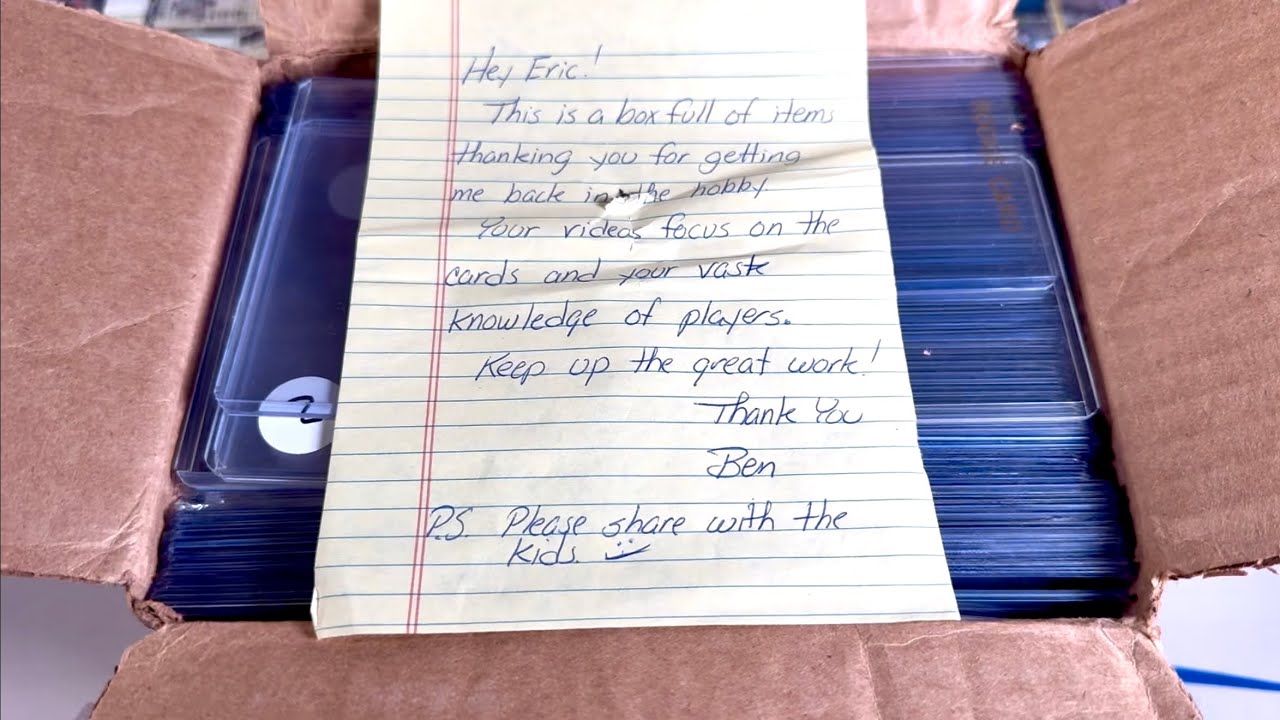 Hey Eric!
This is a box full of items
thanking you for getting
me back in the hobby.
Your videos focus on the
cards and your vast
knowledge of players.
Keep up the great work!
Thank You
Ben
P.S. Please share with the
Kids.
2